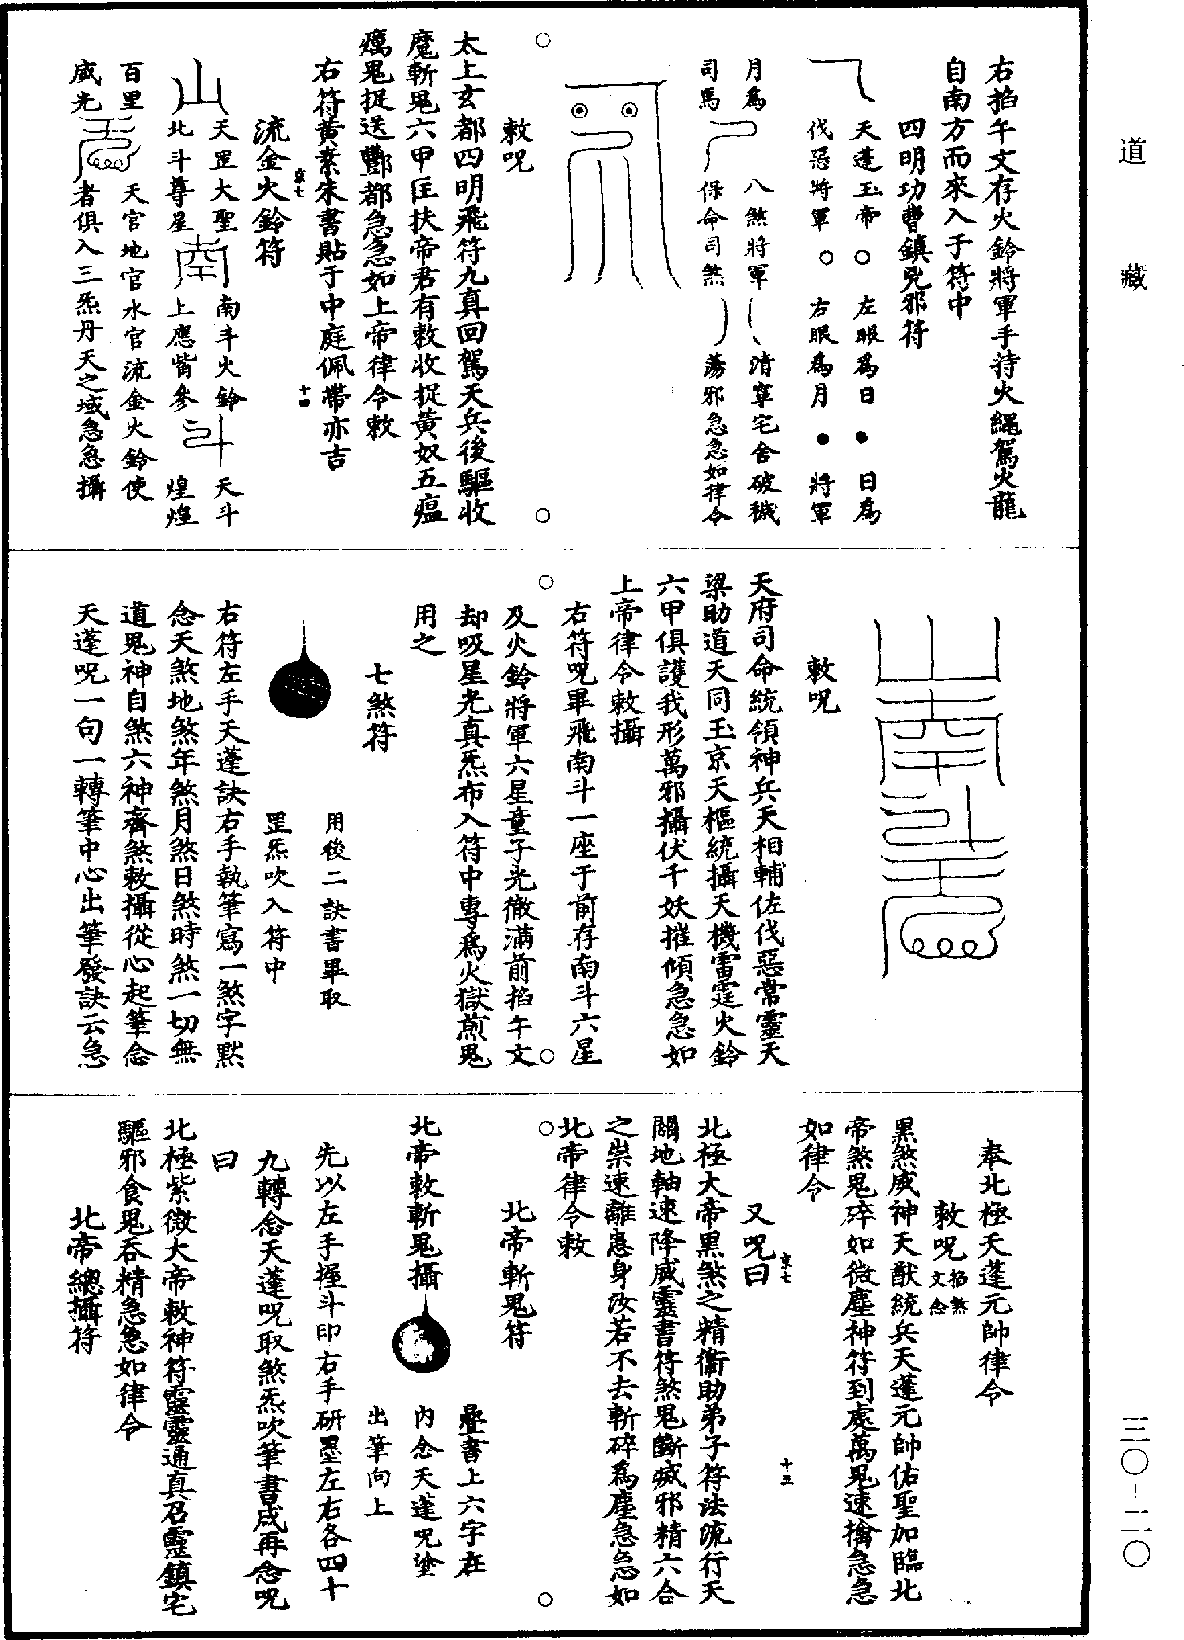 道藏
三〇-二〇
右掐午文存火鈴將軍手持火繩駕火龍
自南方而來入于符中
四明功曹鎮兇邪符
天蓬玉帝 左眼為日 日為
伐惡將軍 右眼為月 將軍
月為 八煞將軍 清寧宅舍破穢
司馬 保命司煞 蕩邪急急如律令
敕呪
太上玄都四明飛符九真回駕天兵後驅收
魔斬鬼六甲匡扶帝君有敕收捉黃奴五瘟
癘鬼捉送酆都急急如上帝律令敕
右符黃素朱書貼于中庭佩帶亦吉
京七
十四
流金火鈴符
天罡大聖 南斗火鈴 天斗
山 北斗尊星 南 上應觜參 斗 煌煌
百里 天官地官水官流金火鈴使
威光 者俱入三炁丹天之域急急攝
敕呪
天府司命統領神兵天相輔佐伐惡常靈天
梁助道天同玉京天樞統攝天機雷霆火鈴
六甲俱護我形萬邪攝伏千妖摧傾急急如
上帝律令敕攝
右符呪畢飛南斗一座于前存南斗六星
及火鈴將軍六星童子光徹滿前掐午文
却吸星光真炁布入符中專為火獄煎鬼
用之
七煞符
用後二訣書畢取
罡炁吹入符中
右符左手天蓬訣右手執筆寫一煞字默
念天煞地煞年煞月煞日煞時煞一切無
道鬼神自煞六神齊煞敕攝從心起筆念
天蓬呪一句一轉筆中心出筆發訣云急
奉北極天蓬元帥律令
敕呪 掐煞文念
黑煞威神天猷統兵天蓬元帥佑聖加臨北
帝煞鬼碎如微塵神符到處萬鬼速擒急急
如律令
京七
十五
又呪曰
北極大帝黑煞之精衞助弟子符法流行天
關地軸速降威靈書符煞鬼斷滅邪精六合
之祟速離患身汝若不去斬碎為塵急急如
北帝律令敕
北帝斬鬼符
疊書上六字在
北帝敕斬鬼攝 內念天蓬呪塗
出筆向上
先以左手握斗印右手研墨左右各四十
九轉念天蓬呪取煞炁吹筆書成再念呪
曰
北極紫微大帝敕神符靈靈通真召靈鎮宅
驅邪食鬼吞精急急如律令
北帝總攝符